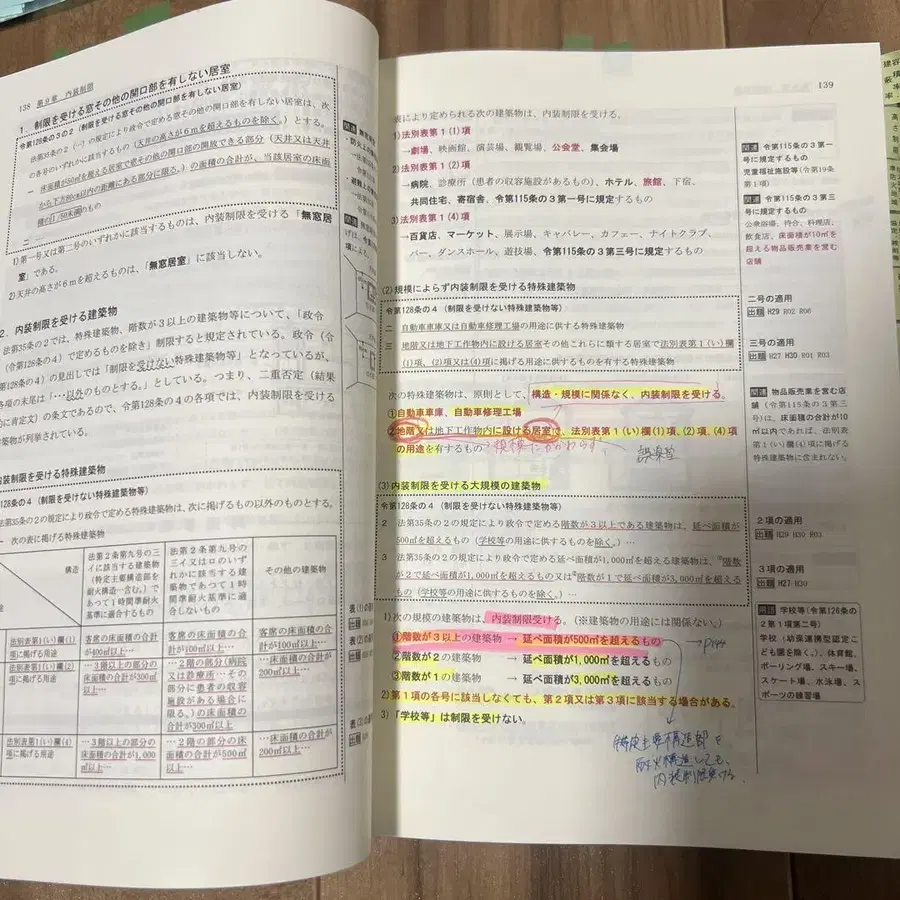 138 第9章 内装制限
1. 制限を受ける窓その他の開口部を有しない居室
令第128条の3の2(制限を受ける窓その他の開口部を有しない居室)
法第35条の2(一の規定により政令で定める窓その他の開口部を有しない居室は、次
の各号のいずれかに該当するもの(天井の高さが6mを超えるものを除く。)とする。
一 床面積が50㎡を超える居室で窓その他の開口部の開放できる部分(天井又は天井
から下方80cm以内の距離にある部分に限る。)の面積の合計が、当該居室の床面
積の1/50未満のもの
二 ……
1)第一号又は第二号のいずれかに該当するものは、内装制限を受ける「無窓居
室」である。
2)天井の高さが6mを超えるものは、「無窓居室」に該当しない。
2. 内装制限を受ける建築物
法第35条の2では、特殊建築物、階数が3以上の建築物等について、「政令
(令第128条の4)で定めるものを除き」制限すると規定されている。政令(令
第128条の4)の見出しでは「制限を受けない特殊建築物等」となっているが、
各項の末尾は「…以外のものとする。」としている。つまり、二重否定(結果
的に肯定文)の条文であるので、令第128条の4の各項では、内装制限を受ける
建築物が列挙されている。
内装制限を受ける特殊建築物
128条の4(制限を受けない特殊建築物等)
法第35条の2の規定により政令で定める特殊建築物は、次に掲げるもの以外のものとする。
次の表に掲げる特殊建築物
構造
法第2条第九号の三イに該当する建築物(特定主要構造部を耐火構造…含む。)であって1時間準耐火基準に適合するもの
法第2条第九号の三イ又はロのいずれかに該当する建築物であって1時間準耐火基準に適合しないもの
その他の建築物
法別表第1(い)欄(1)項に掲げる用途
客席の床面積の合計が400㎡以上…
客席の床面積の合計が100㎡以上…
客席の床面積の合計が100㎡以上…
法別表第1(い)欄(2)項に掲げる用途
…3階以上の部分の床面積の合計が300㎡以上…
…2階の部分(病院又は診療所…その部分に患者の収容施設がある場合に限る。)の床面積の合計が300㎡以上
…床面積の合計が200㎡以上…
法別表第1(い)欄(4)項に掲げる用途
…3階以上の部分の床面積の合計が1,000㎡以上…
…2階の部分の床面積の合計が500㎡以上…
…床面積の合計が200㎡以上…
139
表により定められる次の建築物は、内装制限を受ける。
1)法別表第1(1)項
→劇場、映画館、演芸場、観覧場、公会堂、集会場
2)法別表第1(2)項
→病院、診療所(患者の収容施設があるもの)、ホテル、旅館、下宿、
共同住宅、寄宿舎、令第115条の3第一号に規定するもの
3)法別表第1(4)項
→百貨店、マーケット、展示場、キャバレー、カフェー、ナイトクラブ、
バー、ダンスホール、遊技場、令第115条の3第三号に規定するもの
(2)規模によらず内装制限を受ける特殊建築物
令第128条の4(制限を受けない特殊建築物等)
二 自動車車庫又は自動車修理工場の用途に供する特殊建築物
三 地階又は地下工作物内に設ける居室その他これらに類する居室で法別表第1(い)欄
(1)項、(2)項又は(4)項に掲げる用途に供するものを有する特殊建築物
次の特殊建築物は、原則として、構造・規模に関係なく、内装制限を受ける。
①自動車車庫、自動車修理工場
②地階又は地下工作物内に設ける居室で、法別表第1(い)欄(1)項、(2)項、(4)項
の用途を有するもの
規模にかかわらず
(3)内装制限を受ける大規模の建築物
令第128条の4(制限を受けない特殊建築物等)
2 法第35条の2の規定により政令で定める階数が3以上である建築物は、延べ面積が
500㎡を超えるもの(学校等の用途に供するものを除く。)…
3 法第35条の2の規定により政令で定める延べ面積が1,000㎡を超える建築物は、階数
が2で延べ面積が1,000㎡を超えるもの又は階数が1で延べ面積が3,000㎡を超えるも
の(学校等の用途に供するものを除く。)…
1)次の規模の建築物は、内装制限受ける。(※建築物の用途には関係ない。)
①階数が3以上の建築物 → 延べ面積が500㎡を超えるもの
②階数が2の建築物 → 延べ面積が1,000㎡を超えるもの
③階数が1の建築物 → 延べ面積が3,000㎡を超えるもの
2)第1項の各号に該当しなくても、第2項又は第3項に該当する場合がある。
3)「学校等」は制限を受けない。
特定主要構造部を
耐火構造としても、
内装制限受ける。
関連 令第115条の3第一
号に規定するもの
児童福祉施設等(令第19条
第1項)
関連 令第115条の3第三
号に規定するもの
公衆浴場、待合、料理店、
飲食店、床面積が10㎡を
超える物品販売業を営む
店舗
二号の適用
出題 H29 R02 R06
三号の適用
出題 H27 H30 R01 R03
関連 物品販売業を営む店
舗(令第115条の3第三
号)は、床面積の合計が10
㎡以内であれば、法別表
第1(い)欄(4)項に掲げる
特殊建築物に含まれない。
2項の適用
出題 H29 H30 R03
3項の適用
出題 H27 H30
関連 学校等(令第126条の
2第1項第二号)
学校(幼保連携型認定こ
ども園を除く。)、体育館、
ボーリング場、スキー場、
スケート場、水泳場、ス
ポーツの練習場